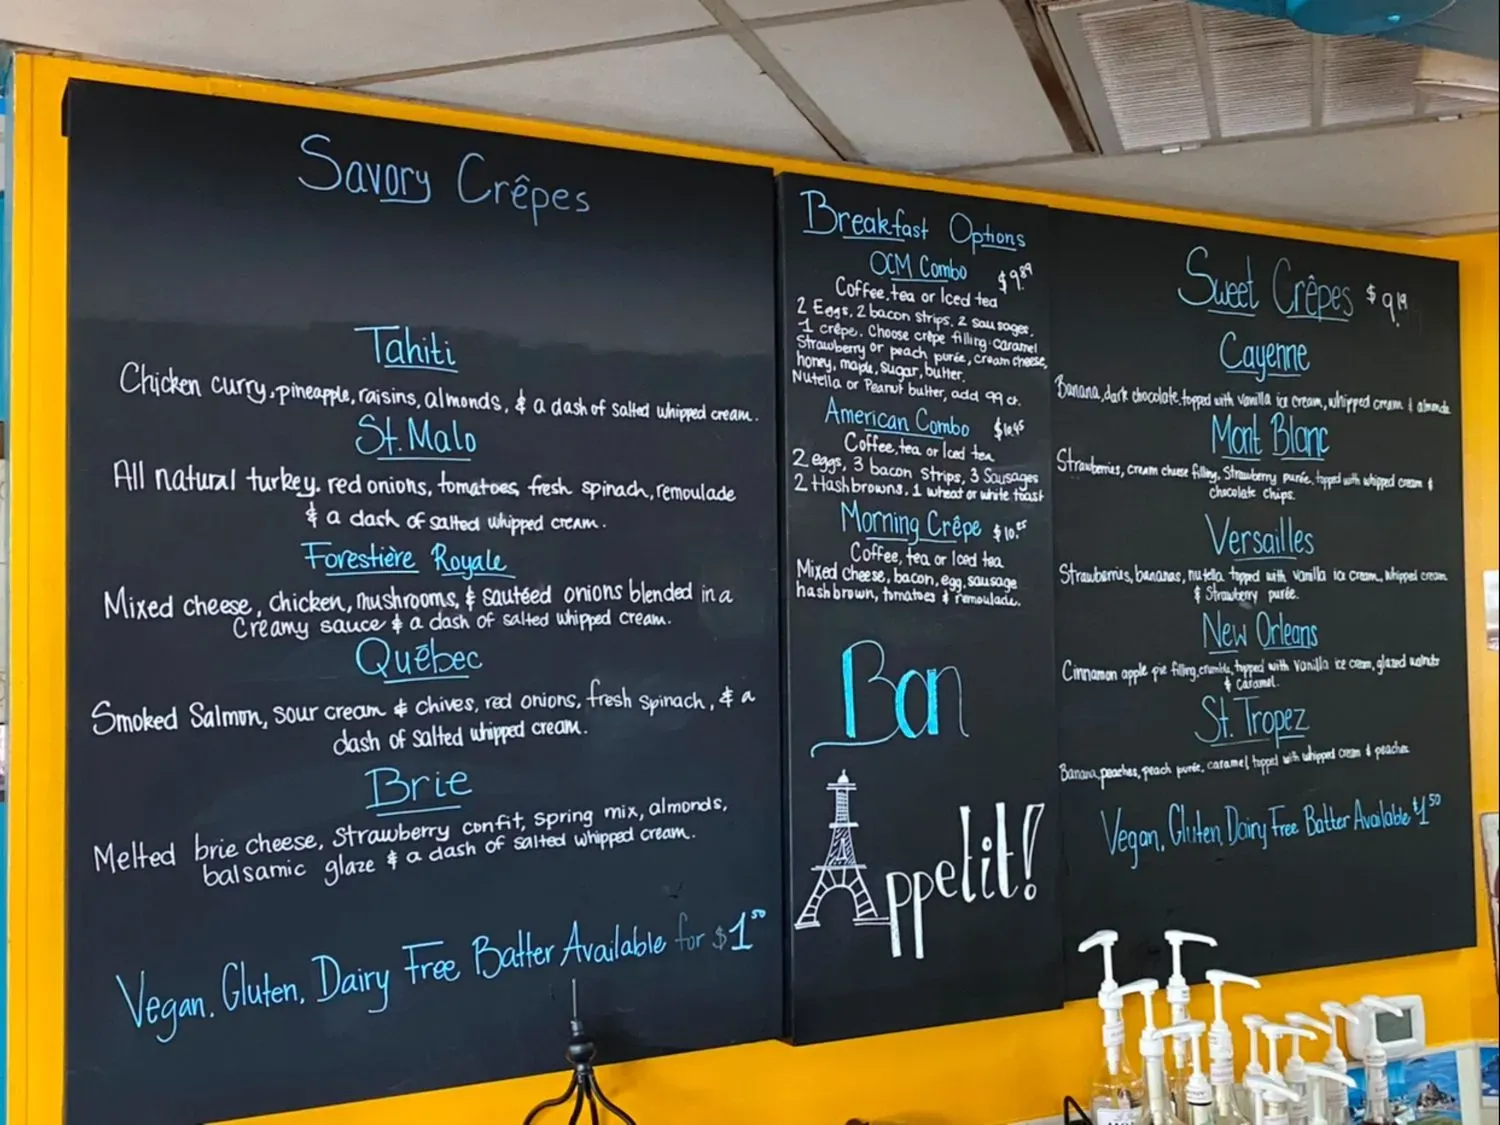 Savory Crêpes
Tahiti
Chicken curry, pineapple, raisins, almonds, & a dash of salted whipped cream.
St. Malo
All natural turkey. red onions, tomatoes, fresh spinach, remoulade
& a dash of salted whipped cream.
Forestière Royale
Mixed cheese, chicken, mushrooms, & sautéed onions blended in a
Creamy sauce & a dash of salted whipped cream.
Québec
Smoked Salmon, sour cream & chives, red onions, fresh spinach, & a
dash of salted whipped cream.
Brie
Melted brie cheese, strawberry confit, spring mix, almonds,
balsamic glaze & a dash of salted whipped cream.
Vegan, Gluten, Dairy Free Batter Available for $1.50
Breakfast Options
OCM Combo $9.89
Coffee, tea or Iced tea
2 Eggs, 2 bacon strips, 2 sausages,
1 crêpe. Choose crêpe filling: caramel
Strawberry or peach purée, cream cheese,
honey, maple, sugar, butter.
Nutella or Peanut butter, add 99 ct.
American Combo $10.45
Coffee, tea or Iced tea
2 eggs, 3 bacon strips, 3 Sausages
2 Hashbrowns, 1 wheat or white toast
Morning Crêpe $10.25
Coffee, tea or Iced tea
Mixed cheese, bacon, egg, sausage
hashbrown, tomatoes & remoulade.
Bon
Appetit!
Sweet Crêpes $9.19
Cayenne
Banana, dark chocolate, topped with vanilla ice cream, whipped cream & almonds
Mont Blanc
Strawberries, cream cheese filling, Strawberry purée, topped with whipped cream &
chocolate chips.
Versailles
Strawberries, bananas, nutella topped with vanilla ice cream, whipped cream
& Strawberry purée.
New Orleans
Cinnamon apple pie filling, crumble, topped with vanilla ice cream, glazed walnuts
& Caramel.
St. Tropez
Banana, peaches, peach purée, caramel, topped with whipped cream & peaches
Vegan, Gluten, Dairy Free Batter Available $1.50